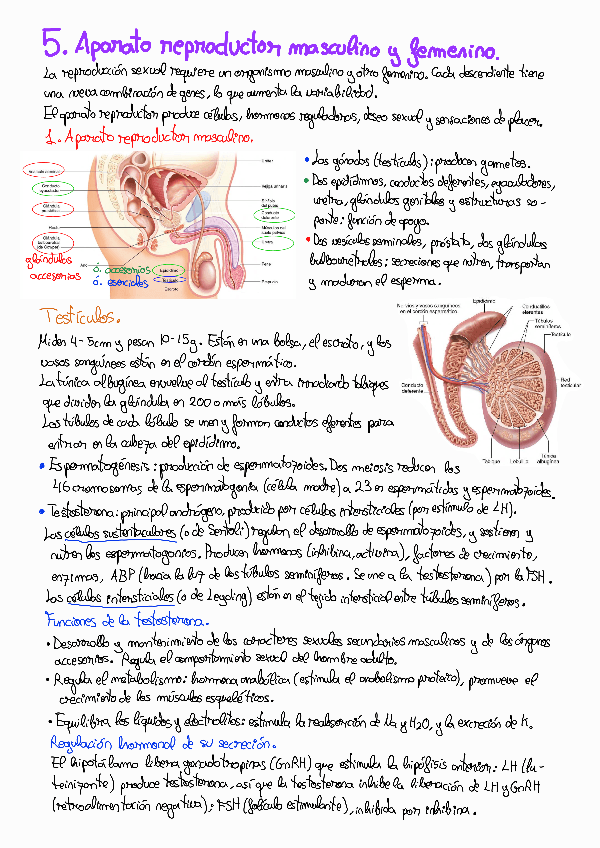 5. Aparato reproductor masculino y femenino.
La reproducción sexual requiere un organismo masculino y otro femenino. Cada descendiente tiene
una nueva combinación de genes, lo que aumenta la variabilidad.
El aparato reproductor produce células, hormonas reguladoras, deseo sexual y sensaciones de placer.
1. Aparato reproductor masculino.
Uréter
Conducto
eyaculador
Vejiga urinaria
Conducto
deferente
Glándula
Recto
Glándula
bulbouretral
(de Cowper)
Uretra
Ano
Pene
Epidídimo
Testículo
Escroto
glándulas
accesorios
o. accesorios
o. esenciales
• Las gónadas (testículos): producen gametos.
• Dos epidídimos, conductos deferentes, eyaculadores,
uretra, glándulas genitales y estructuras so-
porte: función de apoyo.
• Dos vesículas seminales, próstata, dos glándulas
bulbouretrales: secreciones que nutren, transportan
y maduran el esperma.
Testículos.
Miden 4-5cm y pesan 10-15g. Están en una bolsa, el escroto, y los
vasos sanguíneos están en el cordón espermático.
La túnica albugínea envuelve al testículo y entra irradiando tabiques
que dividen la glándula en 200 o más lóbulos.
Los túbulos de cada lóbulo se unen y forman conductos eferentes para
entrar en la cabeza del epidídimo.
Nervios y vasos sanguíneos
en el cordón espermático
Epidídimo
Conductillos
eferentes
Túbulos
seminíferos
Testículo
Conducto
deferente
Red
testicular
Tabique
Lobulillo
Túnica
albugínea
• Espermatogénesis: producción de espermatozoides. Dos meiosis reducen los
46 cromosomas de la espermatogonia (célula madre) a 23 en espermátidas y espermatozoides.
• Testosterona: principal andrógeno, producido por células intersticiales (por estímulo de LH).
Las células sustentaculares (o de Sertoli) regulan el desarrollo de espermatozoides, y sostienen y
nutren las espermatogonias. Producen hormonas (inhibina, activina), factores de crecimiento,
enzimas, ABP (hacia la luz de los túbulos seminíferos. Se une a la testosterona) por la FSH.
Las células intersticiales (o de Leyding) están en el tejido intersticial entre túbulos seminíferos.
Funciones de la testosterona.
• Desarrollo y mantenimiento de los caracteres sexuales secundarios masculinos y de los órganos
accesorios. Regula el comportamiento sexual del hombre adulto.
• Regula el metabolismo: hormona anabólica (estimula el anabolismo proteico), promueve el
crecimiento de los músculos esqueléticos.
• Equilibra los líquidos y electrolitos: estimula la reabsorción de Na y H2O, y la excreción de K.
Regulación hormonal de su secreción.
El hipotálamo libera gonadotropinas (GnRH) que estimula la hipófisis anterior: LH (lu-
teinizante) produce testosterona, así que la testosterona inhibe la liberación de LH y GnRH
(retroalimentación negativa); FSH (folículo estimulante), inhibida por inhibina.